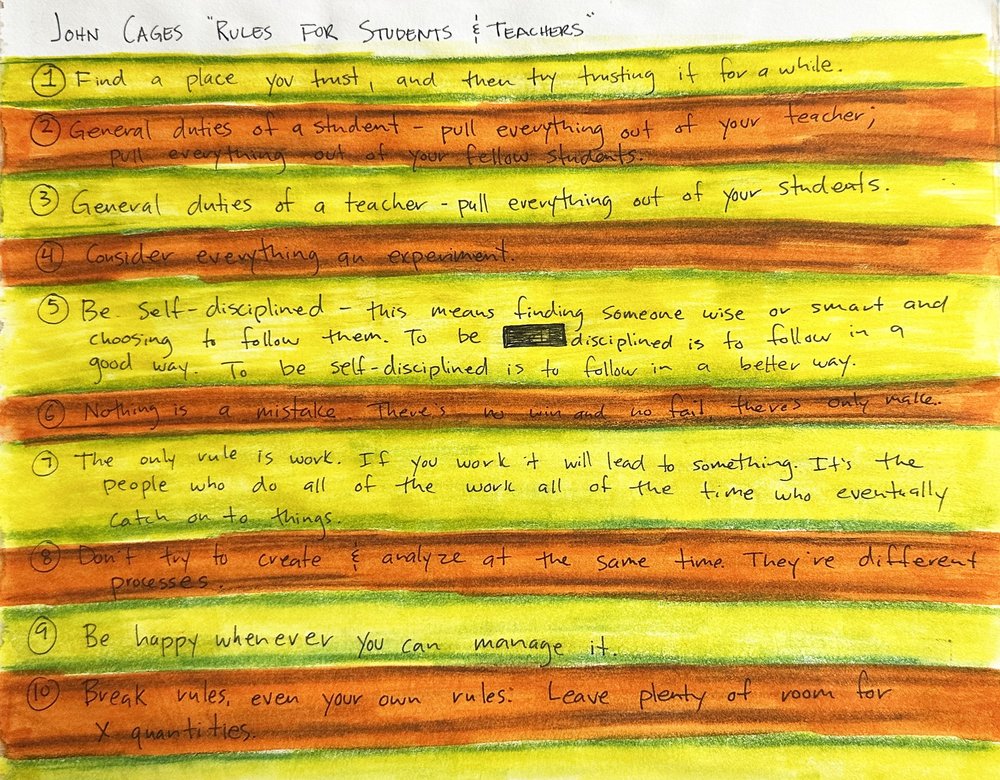 JOHN CAGES "RULES FOR STUDENTS & TEACHERS"
① Find a place you trust, and then try trusting it for a while.
② General duties of a student - pull everything out of your teacher;
pull everything out of your fellow students.
③ General duties of a teacher - pull everything out of your students.
④ Consider everything an experiment.
⑤ Be Self-disciplined - this means finding someone wise or smart and
choosing to follow them. To be disciplined is to follow in a
good way. To be self-disciplined is to follow in a better way.
⑥ Nothing is a mistake. There's no win and no fail, there's only make.
⑦ The only rule is work. If you work it will lead to something. It's the
people who do all of the work all of the time who eventually
catch on to things.
⑧ Don't try to create & analyze at the same time. They're different
processes.
⑨ Be happy whenever you can manage it.
⑩ Break rules, even your own rules: Leave plenty of room for
X quantities.